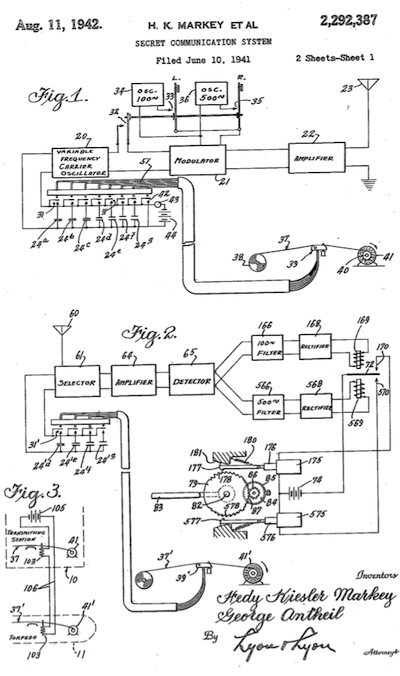 Aug. 11, 1942.
H. K. MARKEY ET AL
2,292,387
SECRET COMMUNICATION SYSTEM
Filed June 10, 1941
2 Sheets-Sheet 1
Fig. 1.
34
OSC. 100~
L.
33
36
OSC. 500~
R.
35
23
32
20
VARIABLE FREQUENCY CARRIER OSCILLATOR
51
MODULATOR
21
22
AMPLIFIER
31
42
43
24a
24b
24c
24d
24e
24f
24g
44
37
38
39
40
41
60
Fig. 2.
61
SELECTOR
64
AMPLIFIER
65
DETECTOR
166
100~ FILTER
168
RECTIFIER
169
170
72
566
500~ FILTER
568
RECTIFIER
569
570
31'
24'd
24'e
24'f
24'g
181
180
176
177
175
79
178
86
85
74
83
82
578
84
87
577
576
575
Fig. 3.
105
TRANSMITTING STATION
41
37
103
10
106
37'
41'
TORPEDO
103
11
37'
39'
41'
Inventors
Hedy Kiesler Markey
George Antheil
By
Lyon & Lyon
Attorneys